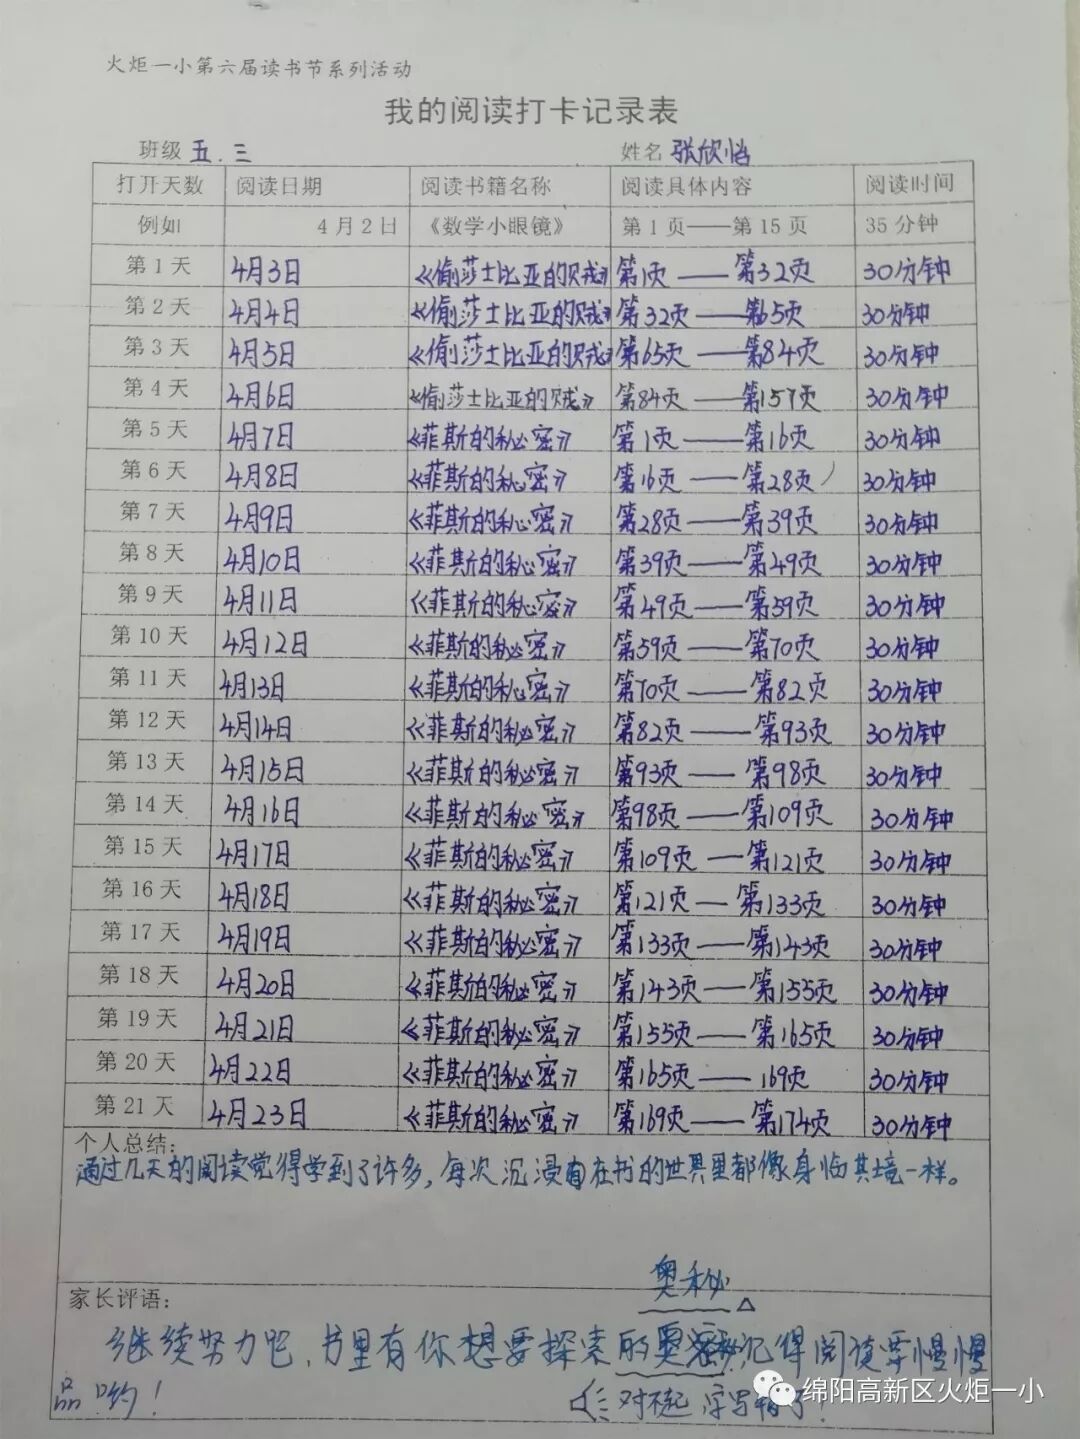 火炬一小第六届读书节系列活动
我的阅读打卡记录表
班级 五.三 姓名 张欣怡
打开天数 阅读日期 阅读书籍名称 阅读具体内容 阅读时间
例如 4月2日 《数学小眼镜》 第1页——第15页 35分钟
第1天 4月3日 《偷莎士比亚的贼》 第1页——第32页 30分钟
第2天 4月4日 《偷莎士比亚的贼》 第32页——第65页 30分钟
第3天 4月5日 《偷莎士比亚的贼》 第65页——第84页 30分钟
第4天 4月6日 《偷莎士比亚的贼》 第84页——第157页 30分钟
第5天 4月7日 《菲斯的秘密》 第1页——第16页 30分钟
第6天 4月8日 《菲斯的秘密》 第16页——第28页 30分钟
第7天 4月9日 《菲斯的秘密》 第28页——第39页 30分钟
第8天 4月10日 《菲斯的秘密》 第39页——第49页 30分钟
第9天 4月11日 《菲斯的秘密》 第49页——第59页 30分钟
第10天 4月12日 《菲斯的秘密》 第59页——第70页 30分钟
第11天 4月13日 《菲斯的秘密》 第70页——第82页 30分钟
第12天 4月14日 《菲斯的秘密》 第82页——第93页 30分钟
第13天 4月15日 《菲斯的秘密》 第93页——第98页 30分钟
第14天 4月16日 《菲斯的秘密》 第98页——第109页 30分钟
第15天 4月17日 《菲斯的秘密》 第109页——第121页 30分钟
第16天 4月18日 《菲斯的秘密》 第121页——第133页 30分钟
第17天 4月19日 《菲斯的秘密》 第133页——第143页 30分钟
第18天 4月20日 《菲斯的秘密》 第143页——第155页 30分钟
第19天 4月21日 《菲斯的秘密》 第155页——第165页 30分钟
第20天 4月22日 《菲斯的秘密》 第165页——169页 30分钟
第21天 4月23日 《菲斯的秘密》 第169页——第174页 30分钟
个人总结:
通过几天的阅读觉得学到了许多,每次沉浸在书的世界里都像身临其境一样。
奥秘
家长评语:
继续努力吧,书里有你想要探索的奥秘记得阅读要慢慢
品哟!
对不起 字写错了!
绵阳高新区火炬一小